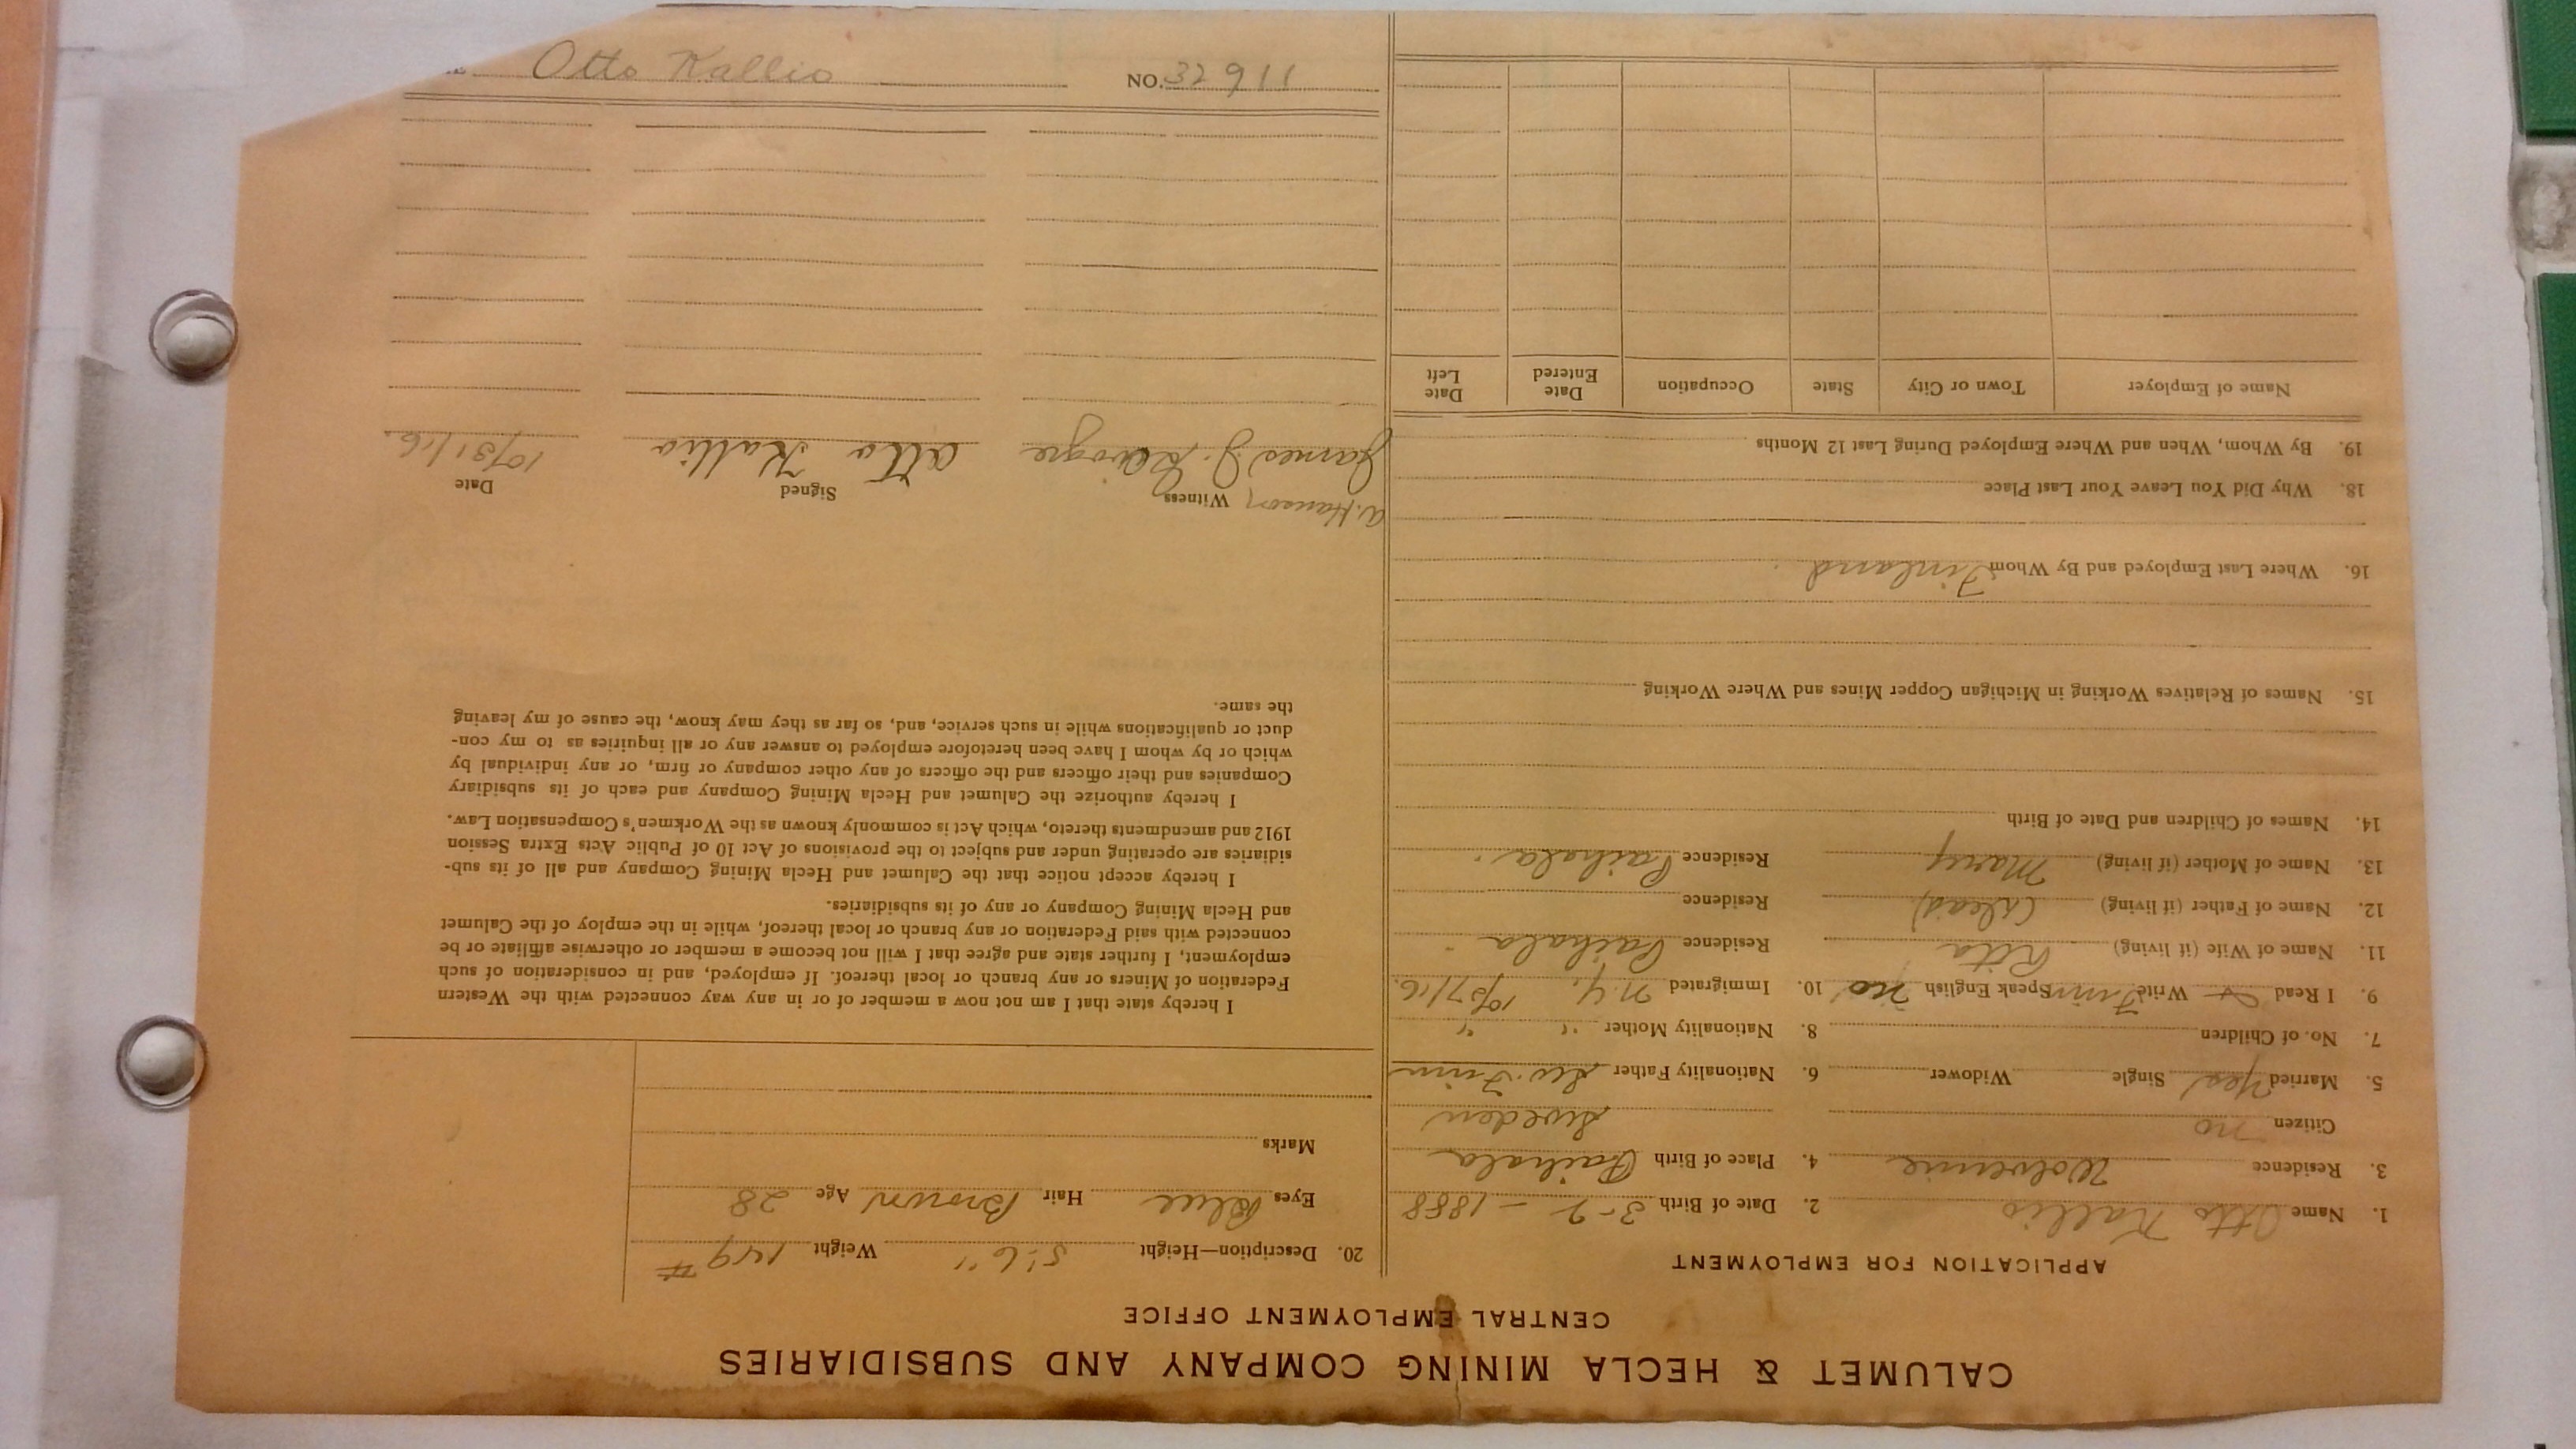 CALUMET & HECLA MINING COMPANY AND SUBSIDIARIES
CENTRAL EMPLOYMENT OFFICE
APPLICATION FOR EMPLOYMENT
1. Name Otto Kallio 2. Date of Birth 3-2-1888
3. Residence Wolverine 4. Place of Birth
Citizen no Sweden
5. Married Yes Single Widower 6. Nationality Father Sw. Finn
7. No. of Children 8. Nationality Mother " "
9. I Read Write Finn Speak English No 10. Immigrated N.Y.
11. Name of Wife (if living) Residence
12. Name of Father (if living) (Dead) Residence
13. Name of Mother (if living) Mary Residence
14. Names of Children and Date of Birth
15. Names of Relatives Working in Michigan Copper Mines and Where Working
16. Where Last Employed and By Whom Finland
18. Why Did You Leave Your Last Place
19. By Whom, When and Where Employed During Last 12 Months
Name of Employer Town or City State Occupation Date Entered Date Left
20. Description—Height 5' 6" Weight 149 #
Eyes Blue Hair Brown Age 28
Marks
I hereby state that I am not now a member of or in any way connected with the Western
Federation of Miners or any branch or local thereof. If employed, and in consideration of such
employment, I further state and agree that I will not become a member or otherwise affiliate or be
connected with said Federation or any branch or local thereof, while in the employ of the Calumet
and Hecla Mining Company or any of its subsidiaries.
I hereby accept notice that the Calumet and Hecla Mining Company and all of its sub-
sidiaries are operating under and subject to the provisions of Act 10 of Public Acts Extra Session
1912 and amendments thereto, which Act is commonly known as the Workmen's Compensation Law.
I hereby authorize the Calumet and Hecla Mining Company and each of its subsidiary
Companies and their officers and the officers of any other company or firm, or any individual by
which or by whom I have been heretofore employed to answer any or all inquiries as to my con-
duct or qualifications while in such service, and, so far as they may know, the cause of my leaving
the same.
A. Hanson Witness Signed Date
James J. Otto Kallio 10/31/16.
Otto Kallio NO. 32911